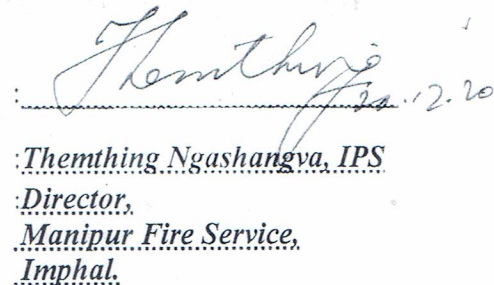 : Themthing
22.12.20
:Themthing Ngashangva, IPS
:Director,
Manipur Fire Service,
Imphal.